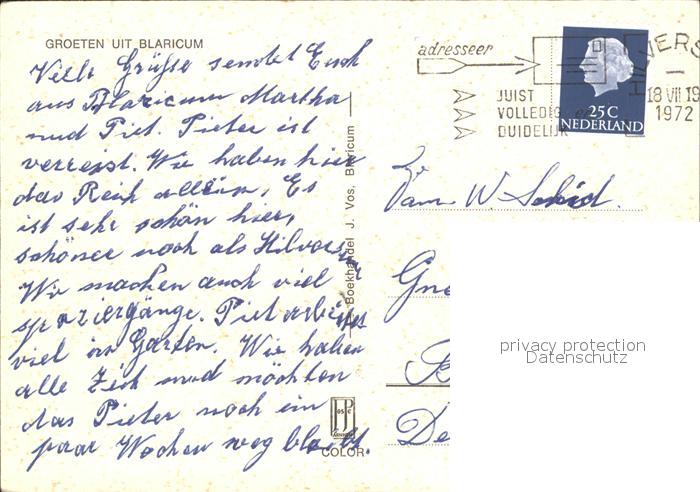 GROETEN UIT BLARICUM
Viele Grüsse sendet Euch
aus Blaricum Martha
und Piet. Pieter ist
verreist. Wir haben hier
das Reich allein, Es
ist sehr schön hier,
schöner noch als Hilversum
Wir machen auch viel
spaziergänge. Piet arbeitet
viel im Garten. Wir haben
alle Zeit und möchten
das Pieter noch ein
paar Wochen weg bleibt.
Boekhandel J. Vos, Blaricum
COLOR
adresseer
JUIST
VOLLEDIG en
DUIDELIJK
25 C
NEDERLAND
HILVERS
18 VII 19
1972
Fam. W.
privacy protection
Datenschutz